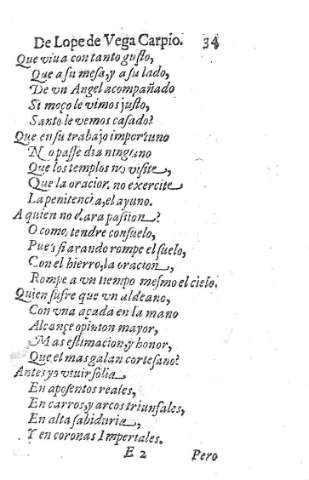 De Lope de Vega Carpio. 34
Que viua con tanto gusto,
Que a su mesa, y a su lado,
De vn Angel acompañado
Si moço le vimos justo,
Santo le vemos casado?
Que en su trabajo importuno
No passe dia ninguno
Que los templos no visite,
Que la oracion no exercite
La penitencia, el ayuno.
A quien no dara passion?
O como tendre consuelo,
Pues si arando rompe el suelo,
Con el hierro, la oracion,
Rompe a vn tiempo mesmo el cielo.
Quien sufre que vn aldeano,
Con vna açada en la mano
Alcançe opinion mayor,
Mas estimacion, y honor,
Que el mas galan cortesano?
Antes yo viuir solia
En aposentos reales,
En carros, y arcos triunfales,
En alta sabiduria,
Y en coronas Imperiales.
E 2 Pero